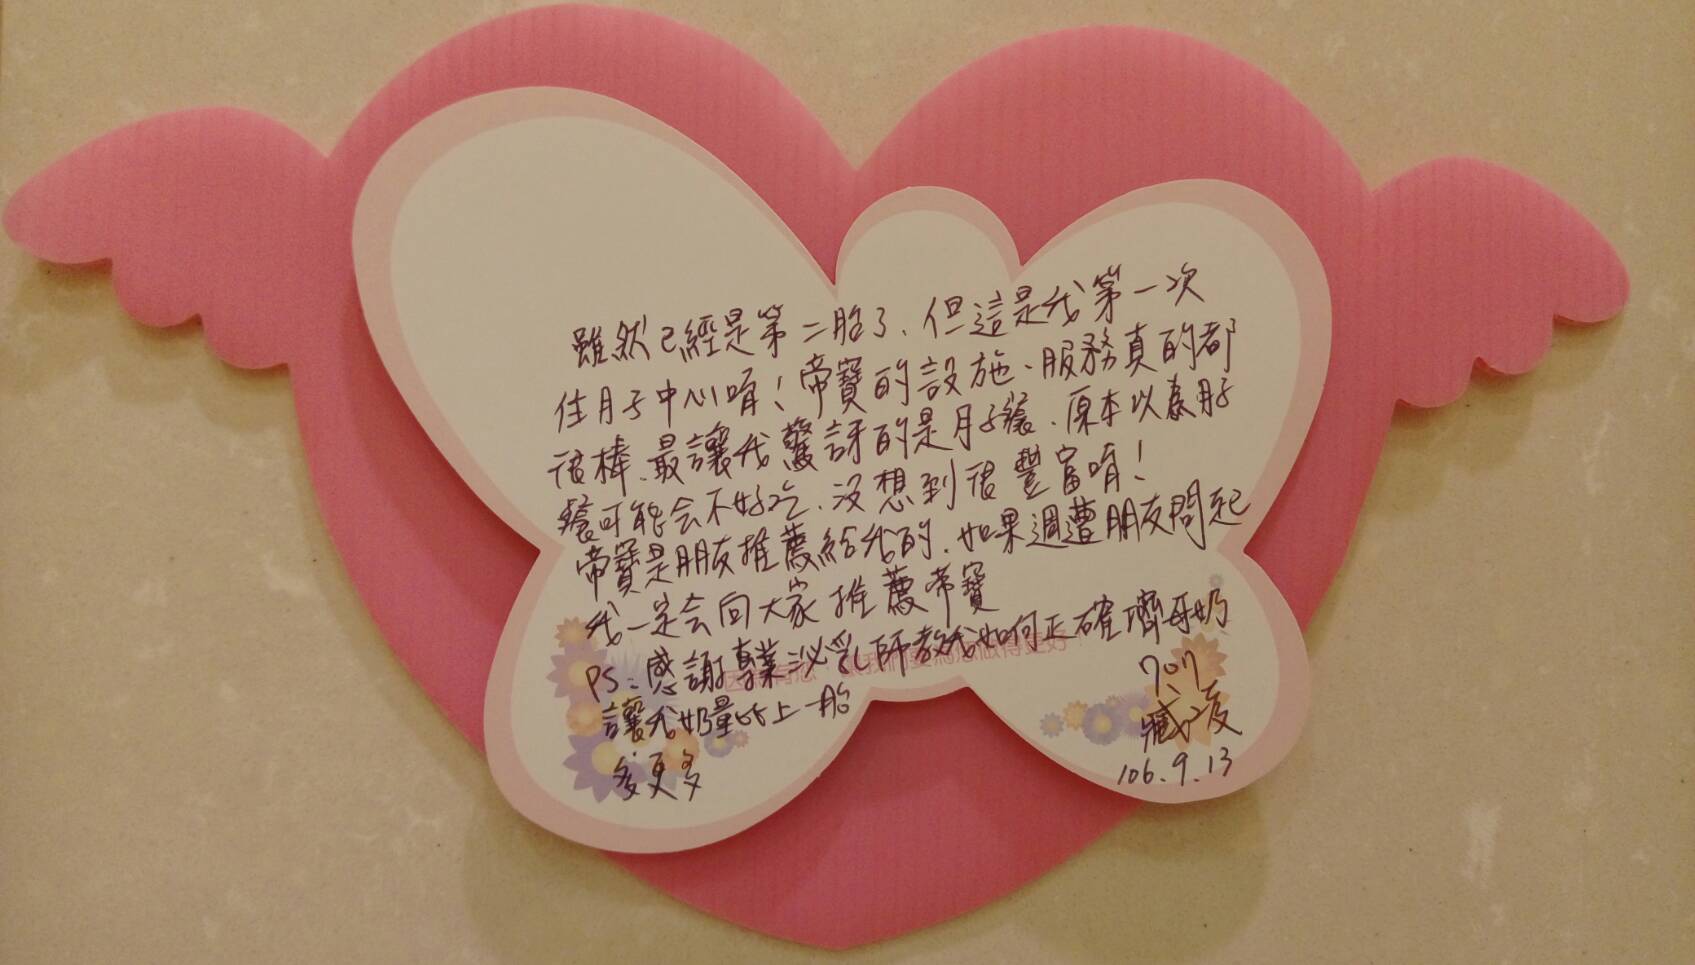 雖然已經是第二胎了、但這是我第一次
住月子中心唷！帝寶的設施、服務真的都
很棒、最讓我驚訝的是月子餐、原本以為月子
餐可能会不好吃、沒想到很豐富唷！
帝寶是朋友推薦給我的、如果週遭朋友問起
我一定会向大家推薦帝寶
PS：感謝專業泌乳師教我如何正確擠母奶
讓我奶量比上一胎
多更多
707
106.9.13